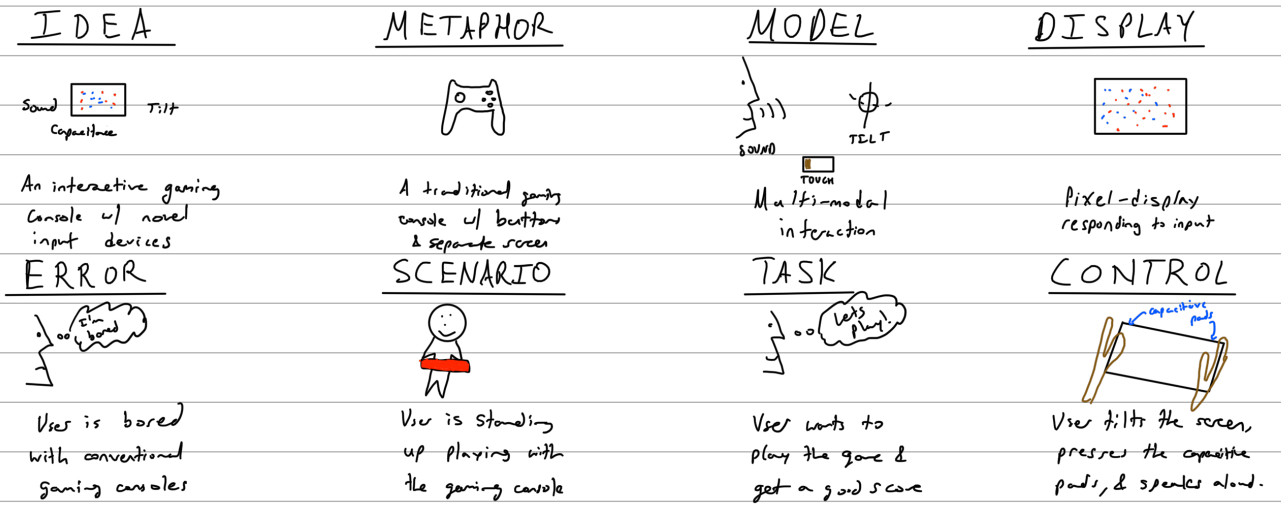 IDEA
Sound
Tilt
Capacitance
An interactive gaming
console w/ novel
input devices
METAPHOR
A traditional gaming
console w/ buttons
& separate screen
MODEL
SOUND
TILT
TOUCH
Multi-modal
interaction
DISPLAY
Pixel-display
responding to input
ERROR
I'm
bored
User is bored
with conventional
gaming consoles
SCENARIO
User is standing
up playing with
the gaming console
TASK
Lets
play!
User wants to
play the game &
get a good score
CONTROL
capacitive
pads
User tilts the screen,
presses the capacitive
pads, & speaks aloud.